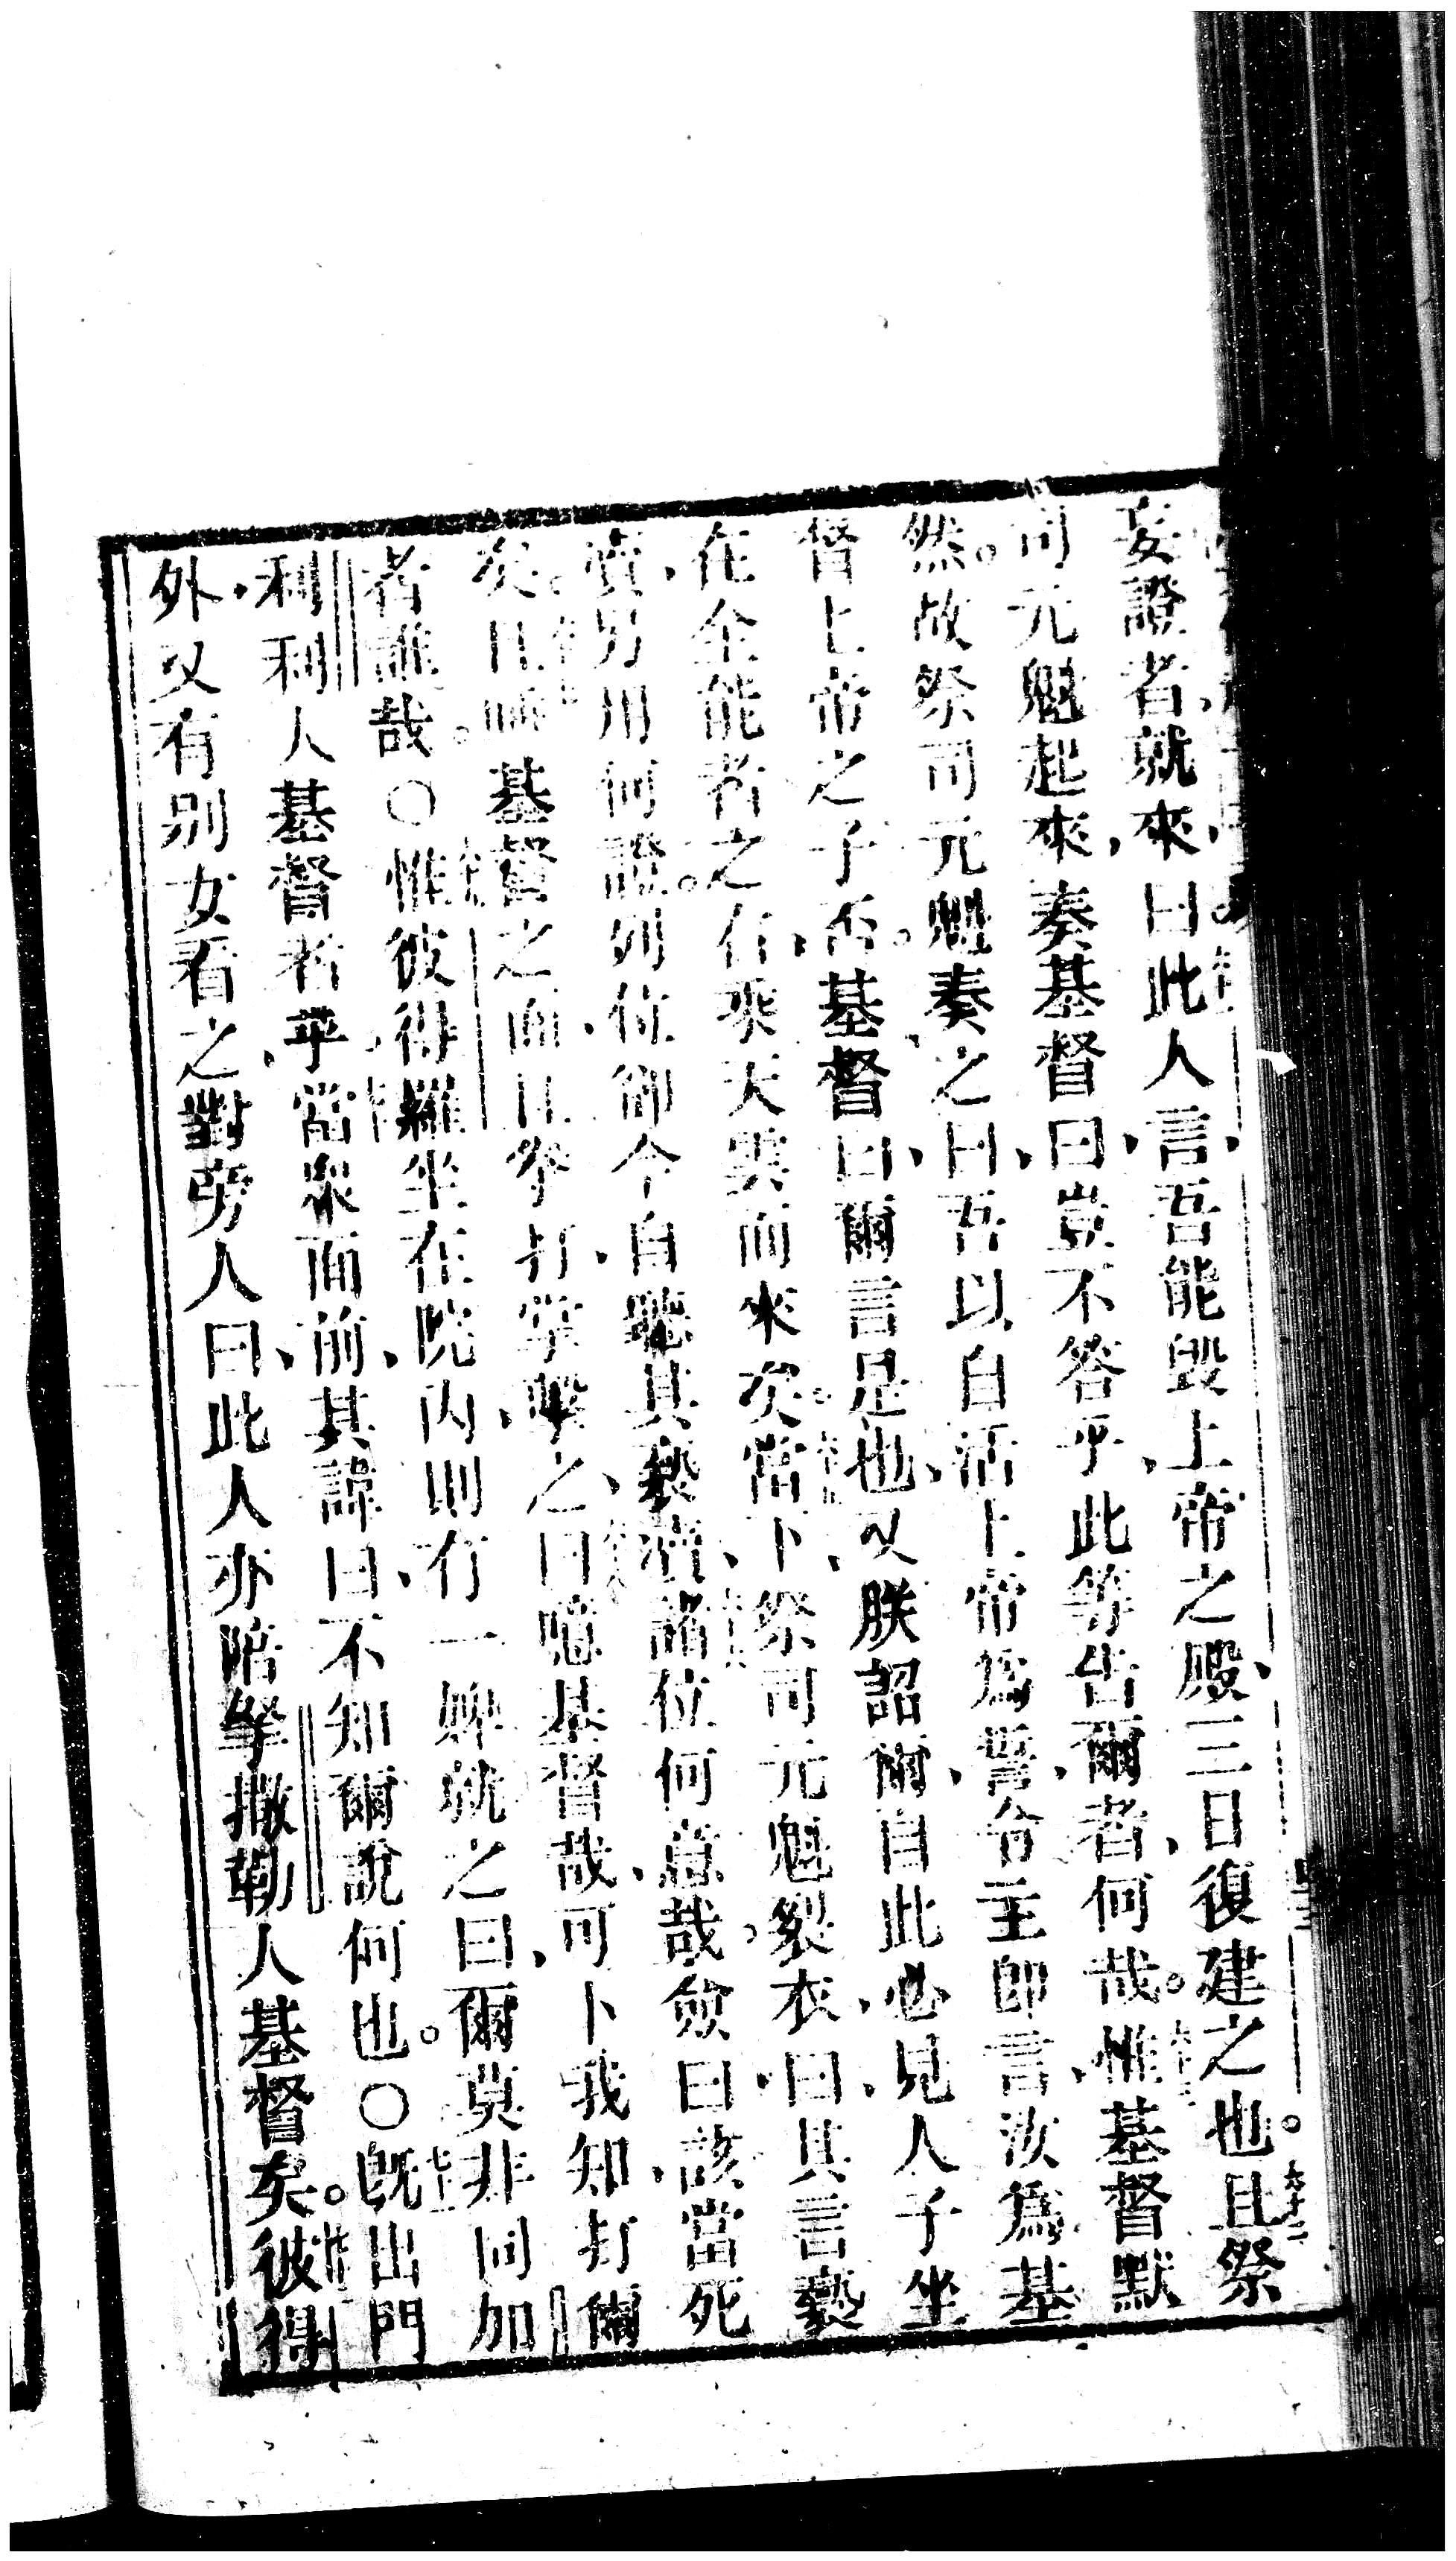 妄證者、就來、曰、此人言、吾能毀上帝之殿、三日復建之也。且祭
司元魁起來、奏基督曰、豈不答乎、此等告爾者、何哉。惟基督默
然。故祭司元魁奏之曰、吾以自活上帝爲誓、令主卽言、汝爲基
督上帝之子否。基督曰、爾言是也、又朕詔爾、自此必見人子坐
在全能者之右、乘天雲而來矣。當下、祭司元魁裂衣、曰、其言褻
瀆、另用何證。列位卽今自聽其褻瀆、諸位何意哉。僉曰、該當死
矣。且唾基督之面、且拳打、掌擊之、曰、噫基督哉、可卜我知、打爾
者誰哉。○惟彼得羅坐在院內、則有一婢就之曰、爾莫非同加
利利人基督者乎、當眾面前、其諱曰、不知爾說何也。○旣出門
外、又有別女看之、對旁人曰、此人亦陪拿撒勒人基督矣。彼得